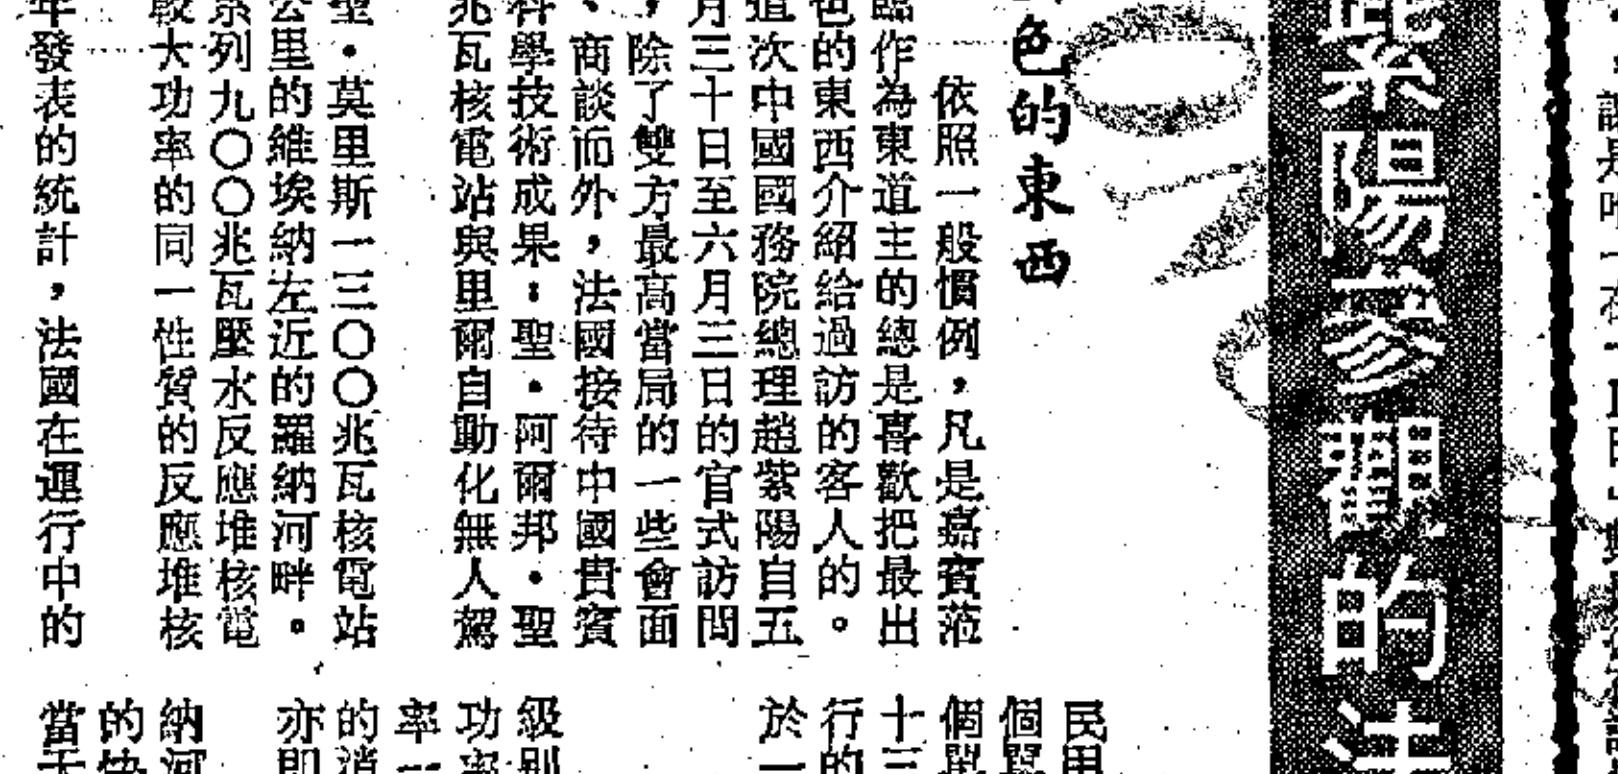 紫陽參觀的法
色的東西
依照一般慣例，凡是嘉賓蒞
臨作為東道主的總是喜歡把最出
色的東西介紹給過訪的客人的。
道次中國國務院總理趙紫陽自五
月三十日至六月三日的官式訪問
，除了雙方最高當局的一些會面
、商談而外，法國接待中國貴賓
科學技術成果：聖·阿爾邦·聖
兆瓦核電站與里爾自動化無人駕
聖·莫里斯一三〇〇兆瓦核電站
公里的維埃納左近的羅納河畔。
系列九〇〇兆瓦壓水反應堆核電
較大功率的同一性質的反應堆核
年發表的統計，法國在運行中的
民用
個單
個單
十三
行的
於一
級別
功率
率一
的消
亦即
納河
的快
當于